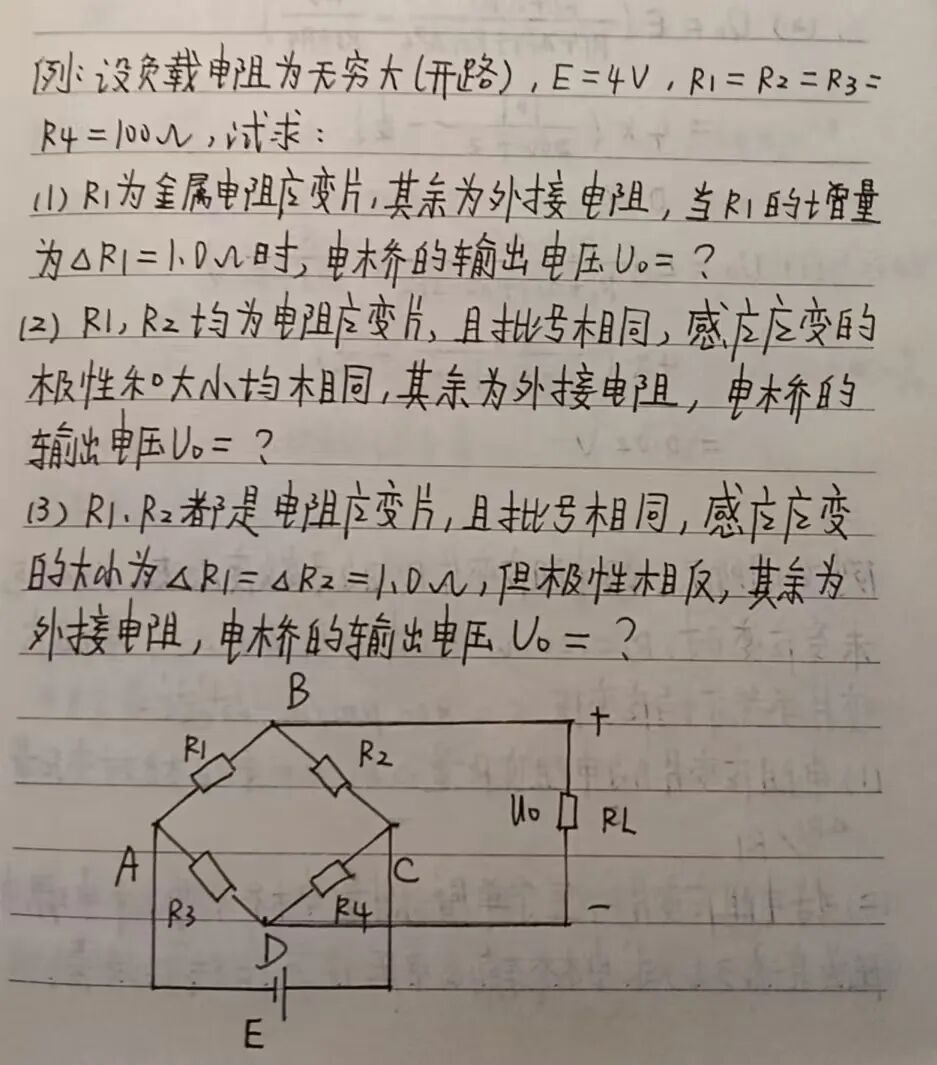 例:设负载电阻为无穷大(开路), E=4V, R1=R2=R3=
R4=100Ω,试求:
(1) R1为金属电阻应变片,其余为外接电阻,当R1的增量
为△R1=1.0Ω时,电桥的输出电压U0=?
(2) R1,R2均为电阻应变片,且批号相同,感应应变的
极性和大小均相同,其余为外接电阻,电桥的
输出电压U0=?
(3) R1、R2都是电阻应变片,且批号相同,感应应变
的大小为△R1=△R2=1.0Ω,但极性相反,其余为
外接电阻,电桥的输出电压 U0=?
B
+
R1
R2
U0
RL
A
C
R3
R4
-
D
E